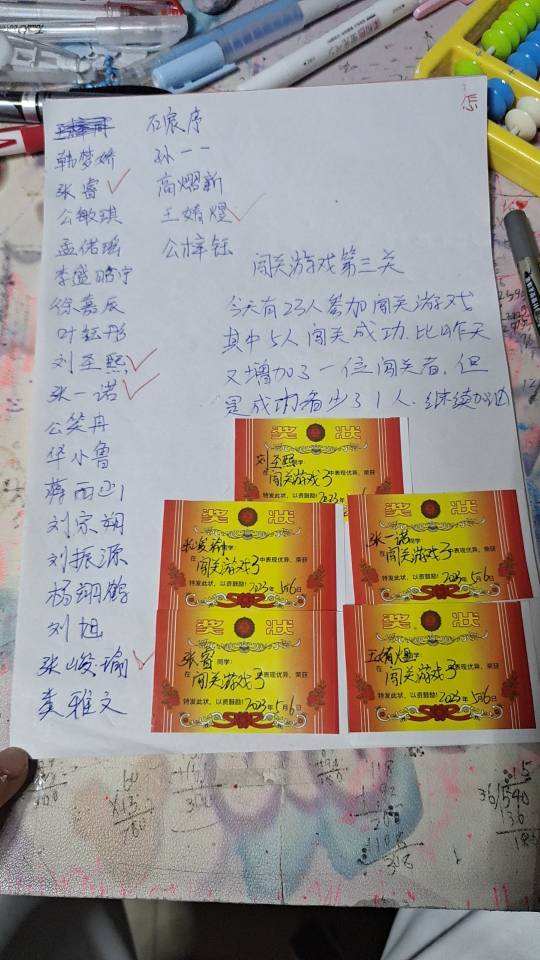 石宸序
韩梦娇
孙一一
张睿
高熠新
公敏琪
王婧煜
孟偌瑶
公梓钰
李盛皓宁
徐嘉辰
叶耘彤
刘至熙
张一诺
公笑冉
华小鲁
蒋雨山
刘宗翔
刘振源
杨翔鹤
刘旭
张峻瑜
龚雅文
闯关游戏第三关
今天有23人参加闯关游戏
其中5人闯关成功.比昨天
又增加了一位闯关者.但
是成功者少了1人.继续加油
奖状
刘至熙同学:
在闯关游戏3中表现优异、荣获
特发此状、以资鼓励!2023年
奖状
张峻瑜同学:
在闯关游戏3中表现优异、荣获
特发此状、以资鼓励!2023年5月6日
奖状
张一诺同学:
在闯关游戏3中表现优异、荣获
特发此状、以资鼓励!2023年5月6日
奖状
张睿同学:
在闯关游戏3中表现优异、荣获
特发此状、以资鼓励!2023年5月6日
奖状
王婧煜同学:
在闯关游戏3中表现优异、荣获
特发此状、以资鼓励!2023年5月6日